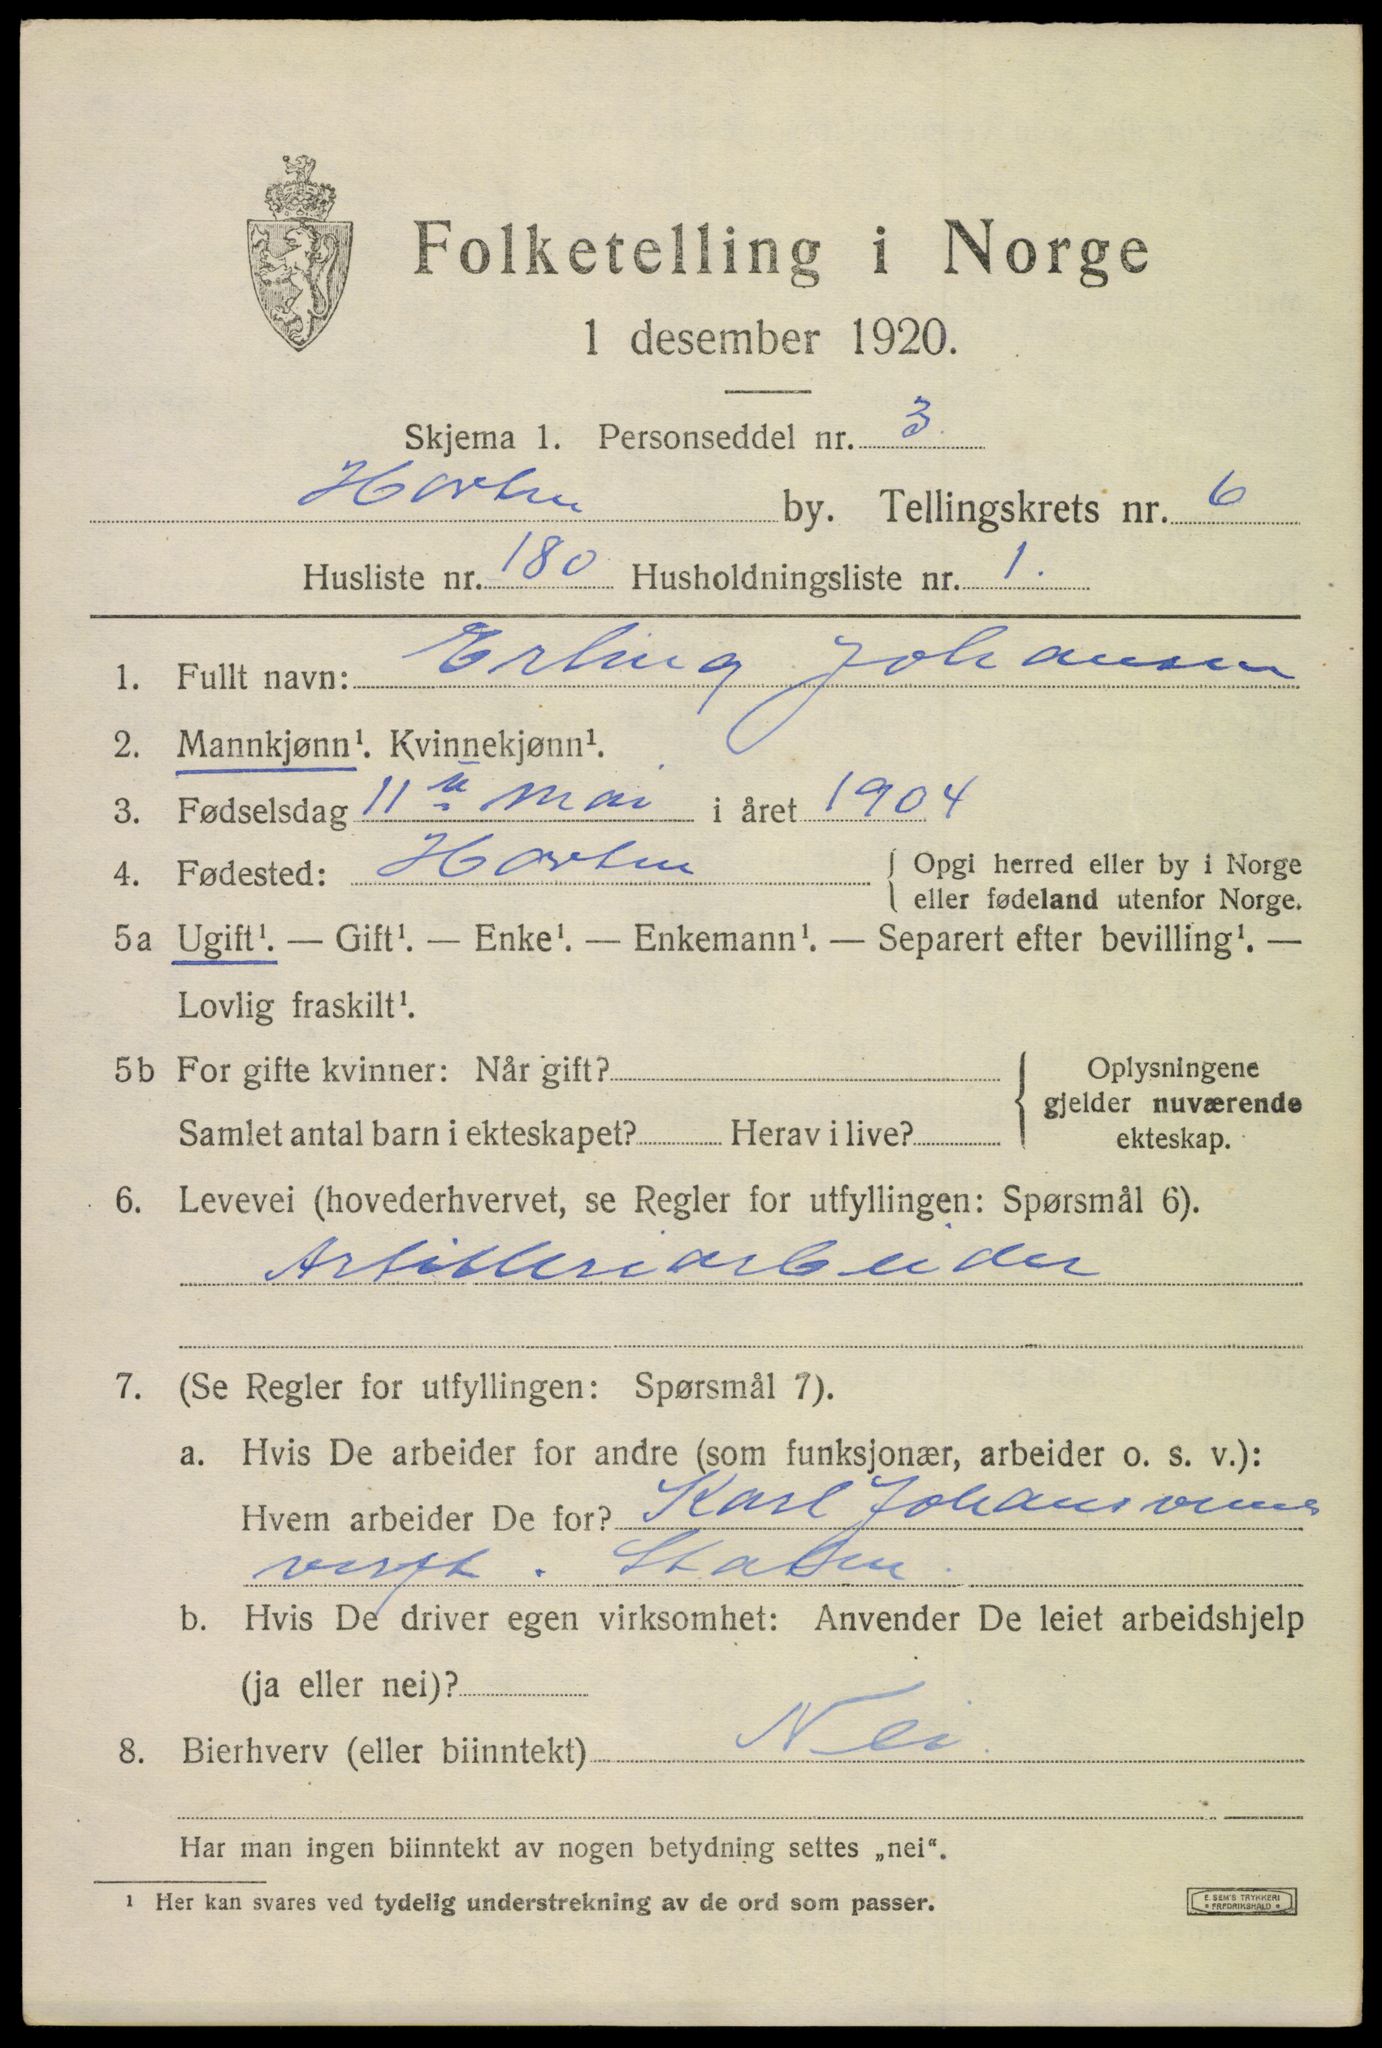 Folketelling i Norge
1 desember 1920.
Skjema 1. Personseddel nr. 3
Horten by. Tellingskrets nr. 6
Husliste nr. 180 Husholdningsliste nr. 1.
1. Fullt navn: Erling Johansen
2. Mannkjønn¹. Kvinnekjønn¹.
3. Fødselsdag 11te mai i året 1904
4. Fødested: Horten { Opgi herred eller by i Norge
eller fødeland utenfor Norge.
5a Ugift¹. — Gift¹. — Enke¹. — Enkemann¹. — Separert efter bevilling¹. —
Lovlig fraskilt¹.
5b For gifte kvinner: Når gift? { Oplysningene
gjelder nuværende
Samlet antal barn i ekteskapet? Herav i live? ekteskap.
6. Levevei (hovederhvervet, se Regler for utfyllingen: Spørsmål 6).
Artilleriarbeider
7. (Se Regler for utfyllingen: Spørsmål 7).
a. Hvis De arbeider for andre (som funksjonær, arbeider o. s. v.):
Hvem arbeider De for? Karl Johansverns
verft. Staten.
b. Hvis De driver egen virksomhet: Anvender De leiet arbeidshjelp
(ja eller nei)?
8. Bierhverv (eller biinntekt) Nei.
Har man ingen biinntekt av nogen betydning settes „nei“.
¹ Her kan svares ved tydelig understrekning av de ord som passer.
E. SEM'S TRYKKERI
* FREDRIKSHALD *